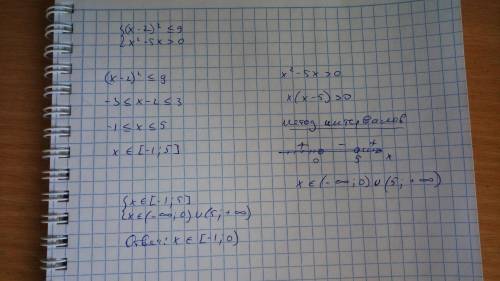 {(x-2)² ≤ 9
{x²-5x>0
(x-2)² ≤ 9
-3 ≤ x-2 ≤ 3
-1 ≤ x ≤ 5
x ∈ [-1; 5]
x²-5x>0
x(x-5)>0
метод интервалов
+ - +
0 5 x
x ∈ (-∞; 0) ∪ (5; +∞)
{x ∈ [-1; 5]
{x ∈ (-∞; 0) ∪ (5; +∞)
Ответ: x ∈ [-1; 0)